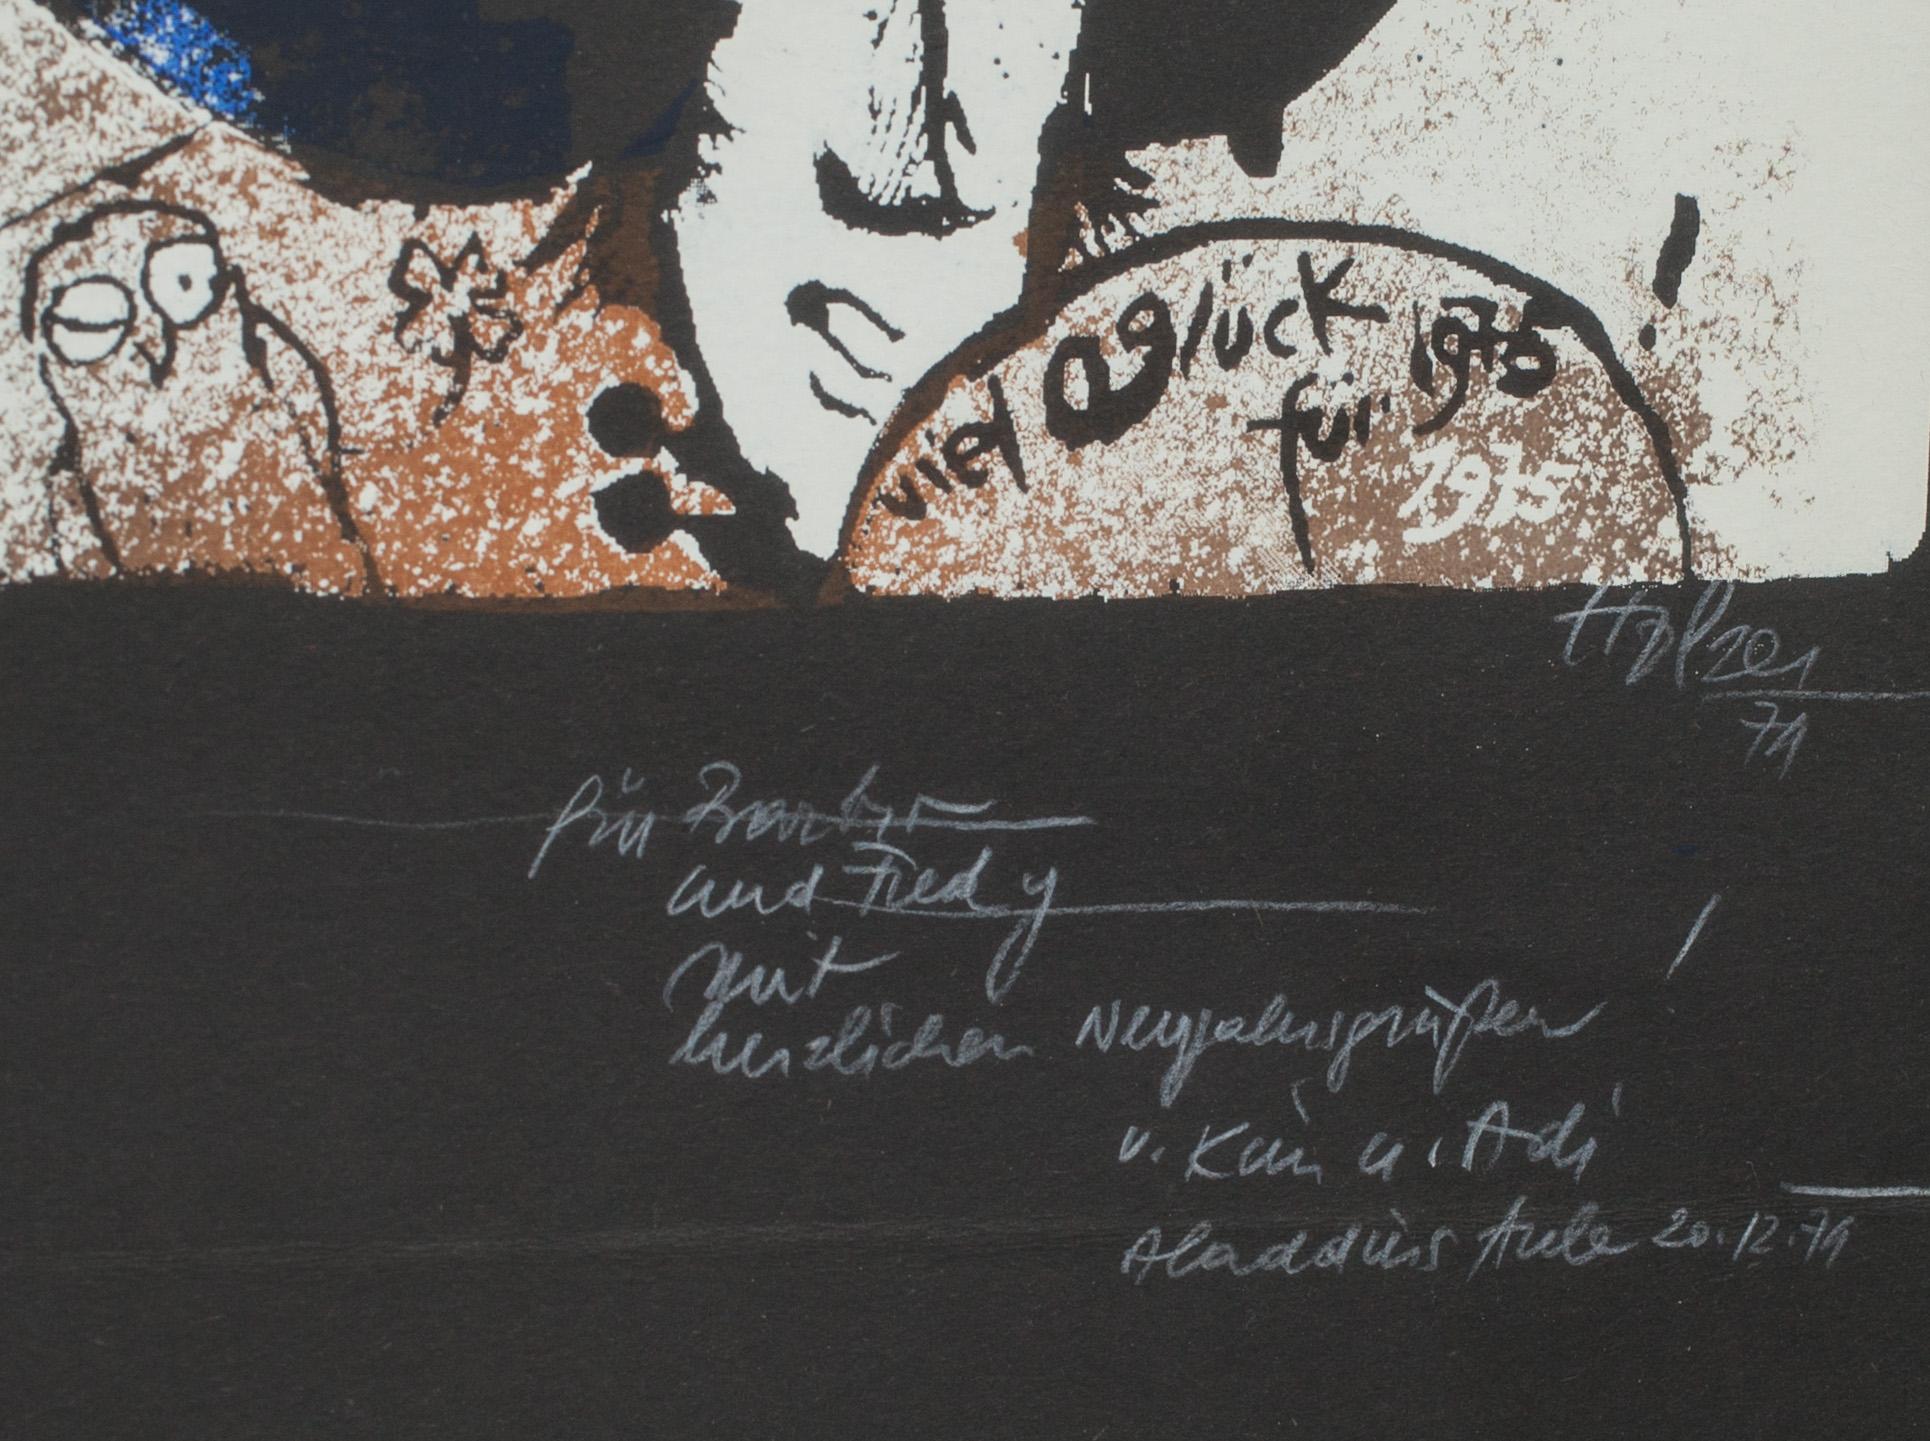 viel glück
für 1975
1975
!
Holzer
74
für Barbara
und Fredy
mit
herzlichen Neujahrsgrüßen !
v. u. Adi
20.12.74